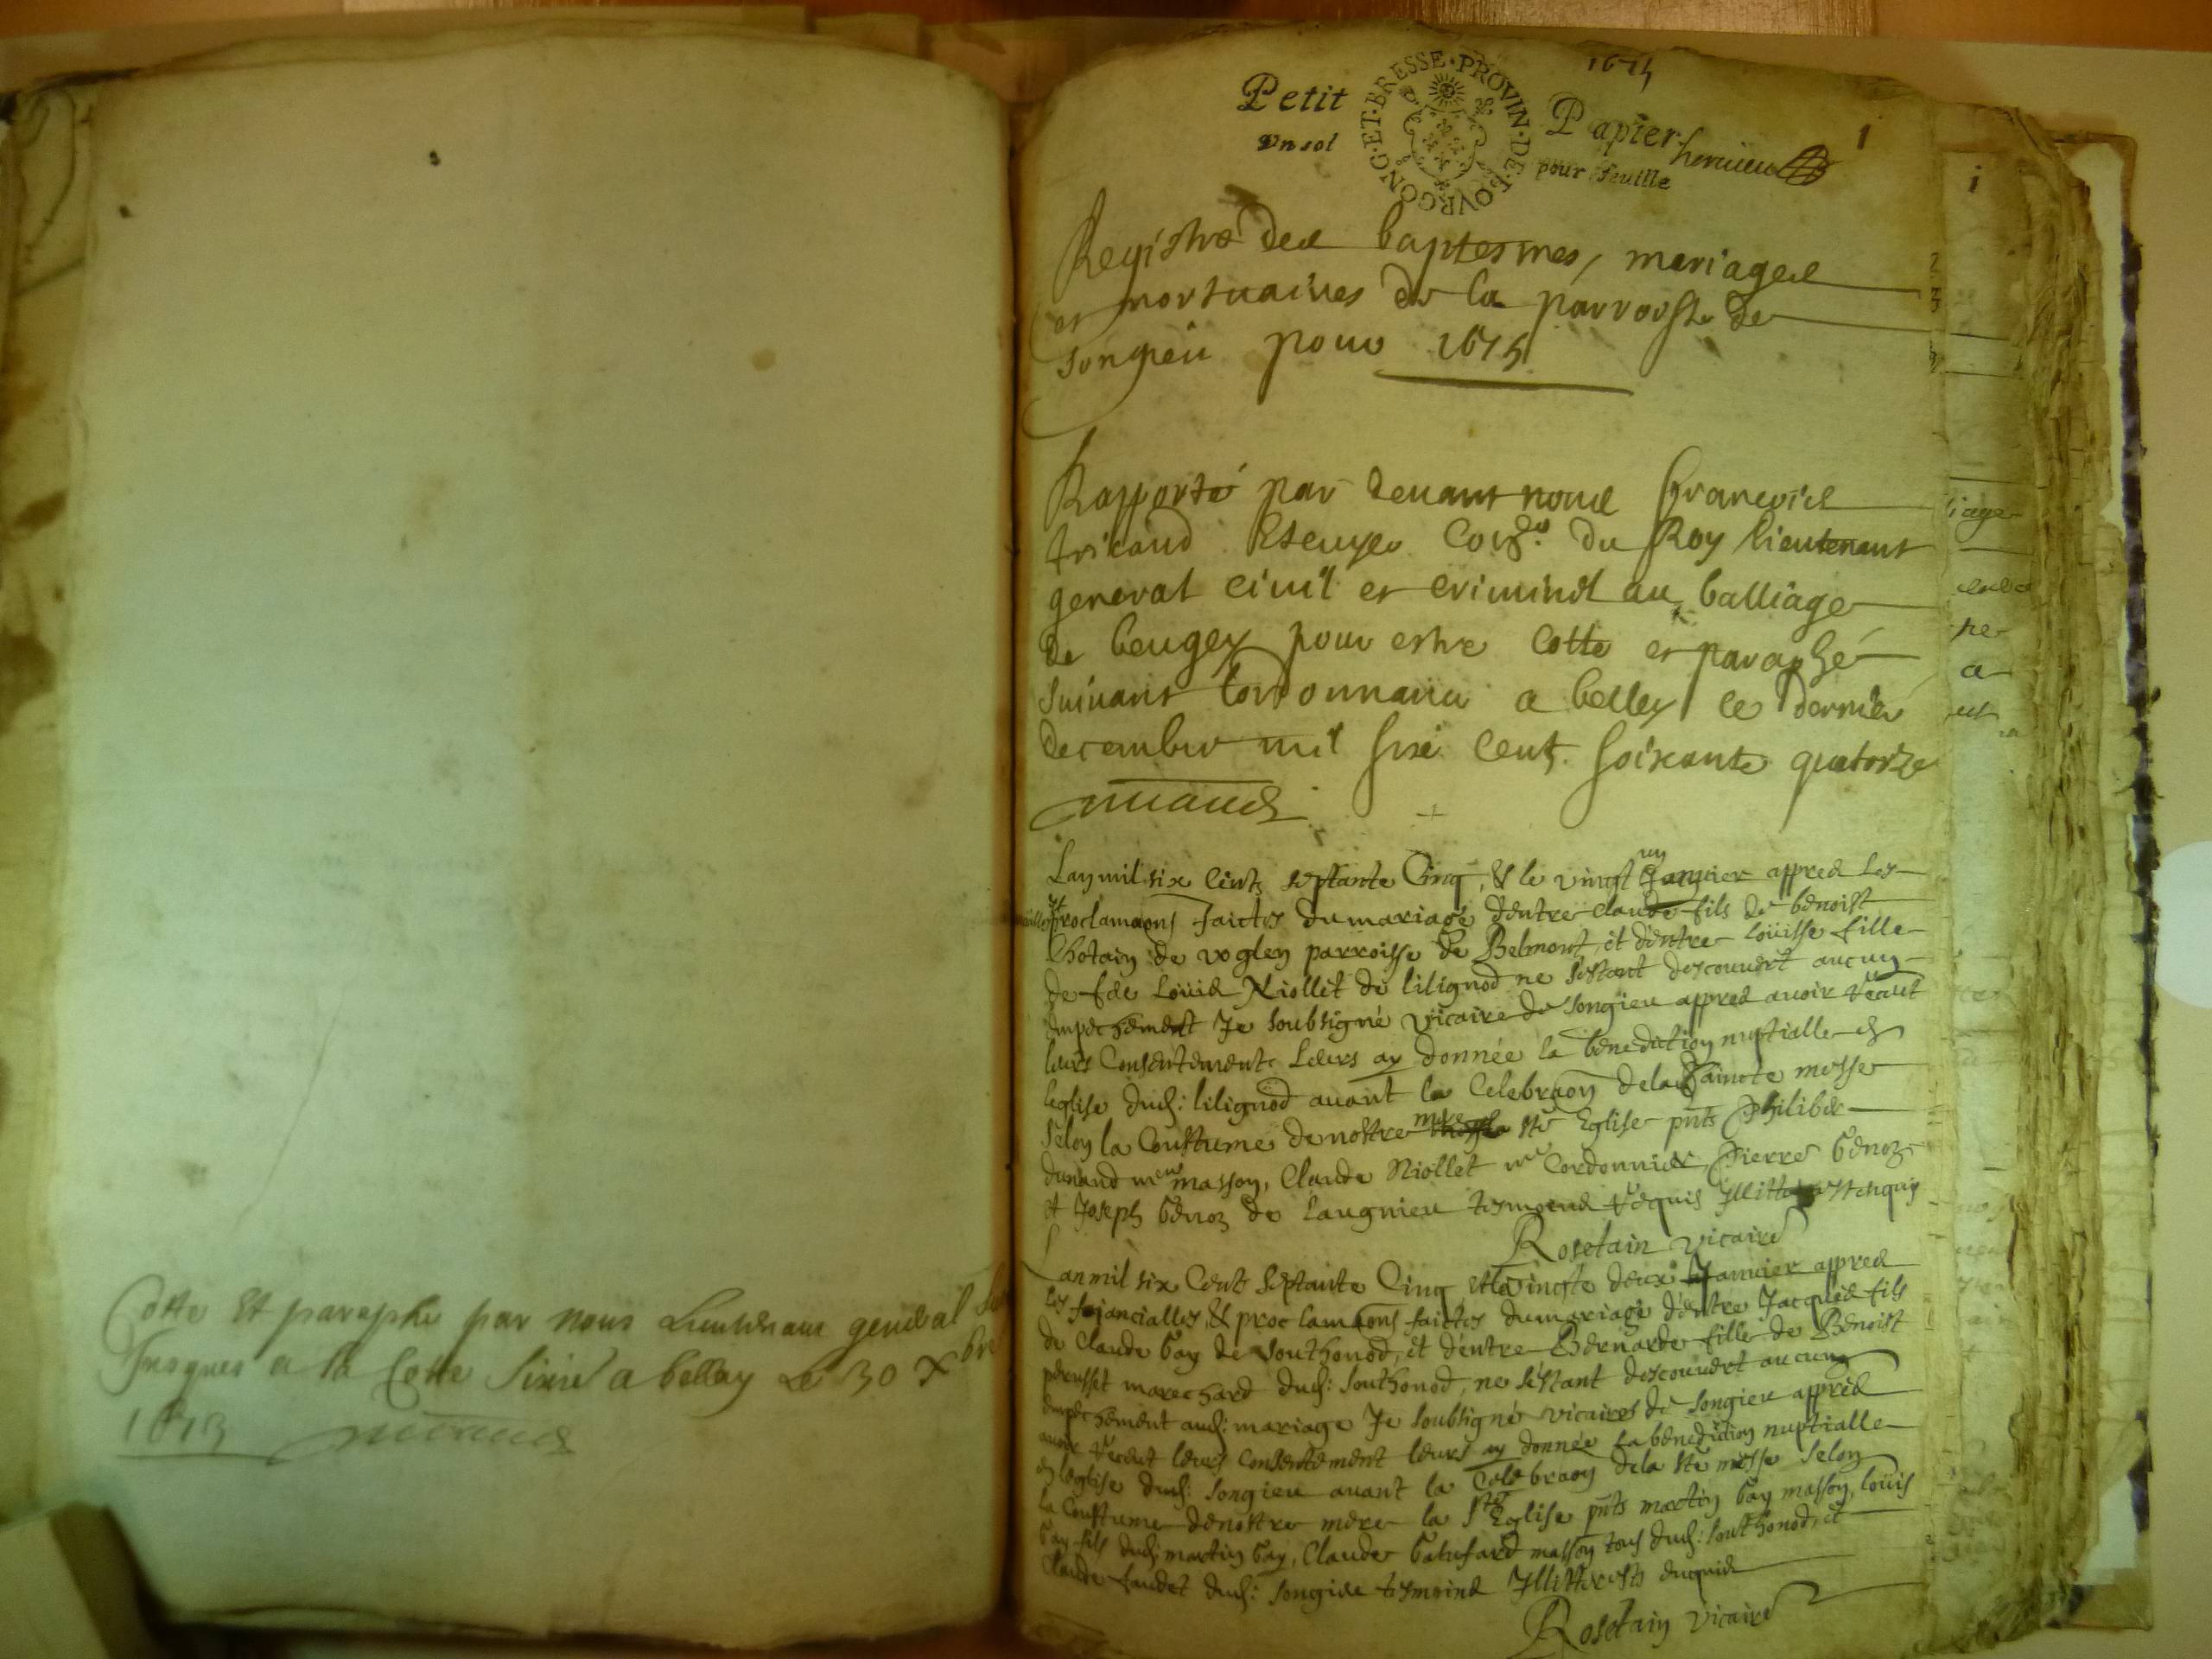 Cotte Et paraphe par nous Lieutenant general
Jusques a la Cotte Sixie a belley Le 30 Xbre
1673
1675
Petit Papier 1
Vn sol pour feuille
BOVRGONG·ET·BRESSE·PROVIN·DE·
Registre des baptesmes, mariages
et mortuaires de la parroisse de
Songieu pour 1675
Rapporté par deuant nous Francois
tricaud Escuyer Con.er du Roy lieutenant
general ciuil et criminel au balliage
de beugey pour estre cotte et paraphé
Suiuant lordonnance a belley le dernier
decembre mil six cents soixante quatorze
Lan mil six cents septante Cinq, & le vingt un Januier appres les
proclamaons faictes du mariage dentre claude fils de benoist
Chotain de voglen parroisse de Belmont, et dentre Loüisse fille
de feu Loüis Niollet de lilignod ne sestant descouuert aucun
empechement Je soubsigné vicaire de Songieu appres auoir receut
leurs Consentement Leurs ay donnée la benediction nuptialle en
leglise dud: lilignod auant la Celebraon de la Saincte messe
selon la Coustume de nostre mere ste Eglise pnts Philiber
dunand me masson, Claude Niollet me Cordonnier, Pierre benoz
et Joseph benoz de Laugnieu tesmoins requis Illitterés enquis
Rosetain vicaire
Lan mil six Cents Septante Cinq et le vingte deux Januier appres
les fiancialles, & proclamaons faictes du mariage dentre Jacques fils
de Claude Gay de Southonod, et dentre Bernarde fille de Benoist
perusset marechard dud: Southonod, ne sestant descouuert aucung
empechement aud: mariage Je soubsigné vicaires de Songieu appres
auoir receut leurs Consentement leurs ay donnée la benediction nuptialle
en leglise dud: Songieu auant la Celebraon de la ste messe selon
la Coustume de nostre mere la ste Eglise pnts martin Gay masson, loüis
Gay fils dud: martin Gay, Claude masson tous dud: Southonod, et
Claude faudet dud: Songieu tesmoins Illitterés enquis
Rosetain vicaire